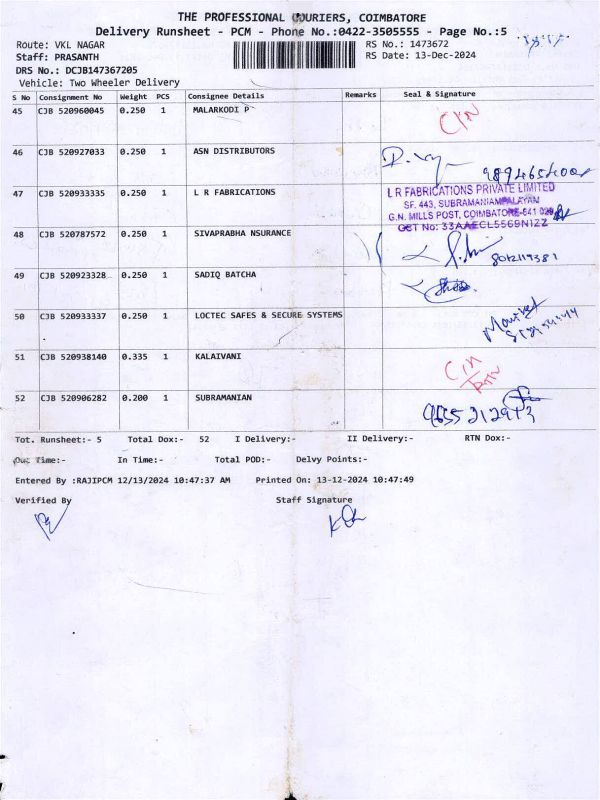 THE PROFESSIONAL COURIERS, COIMBATORE
Delivery Runsheet - PCM - Phone No.:0422-3505555 - Page No.:5
Route: VKL NAGAR
RS No.: 1473672
Staff: PRASANTH
RS Date: 13-Dec-2024
DRS No.: DCJB147367205
Vehicle: Two Wheeler Delivery
S No Consignment No Weight PCS Consignee Details Remarks Seal & Signature
45 CJB 520960045 0.250 1 MALARKODI P
46 CJB 520927033 0.250 1 ASN DISTRIBUTORS
47 CJB 520933335 0.250 1 L R FABRICATIONS
L R FABRICATIONS PRIVATE LIMITED
SF. 443, SUBRAMANIAMPALAYAM
G.N. MILLS POST, COIMBATORE-641 029
GST No: 33AAECL5569N1ZZ
48 CJB 520787572 0.250 1 SIVAPRABHA NSURANCE
49 CJB 520923328 0.250 1 SADIQ BATCHA
50 CJB 520933337 0.250 1 LOCTEC SAFES & SECURE SYSTEMS
51 CJB 520938140 0.335 1 KALAIVANI
52 CJB 520906282 0.200 1 SUBRAMANIAN
Tot. Runsheet:- 5 Total Dox:- 52 I Delivery:- II Delivery:- RTN Dox:-
Out Time:- In Time:- Total POD:- Delvy Points:-
Entered By :RAJIPCM 12/13/2024 10:47:37 AM Printed On: 13-12-2024 10:47:49
Verified By Staff Signature